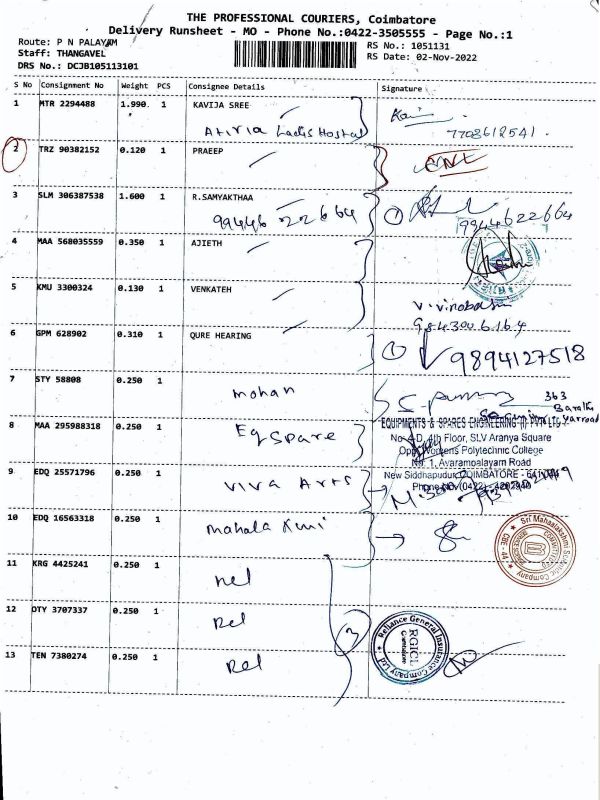 THE PROFESSIONAL COURIERS, Coimbatore
Delivery Runsheet - MO - Phone No.:0422-3505555 - Page No.:1
Route: P N PALAYAM
Staff: THANGAVEL
DRS No.: DCJB105113101
RS No.: 1051131
RS Date: 02-Nov-2022
S No Consignment No Weight PCS Consignee Details Signature
1 MTR 2294488 1.990 1 KAVIJA SREE
Ladis Hostal 7708612541.
2 TRZ 90382152 0.120 1 PRAEEP
3 SLM 306387538 1.600 1 R.SAMYAKTHAA
99446 22664 1 9944622664
4 MAA 568035559 0.350 1 AJIETH
5 KMU 3300324 0.130 1 VENKATEH
V. Vinobash
984300.6.16.4
6 GPM 628902 0.310 1 QURE HEARING 1 9894127518
7 STY 58808 0.250 1 mohan 363
8 MAA 295988318 0.250 1 Eq spare
EQUIPMENTS & SPARES ENGINEERING (I) PVT LTD.
No. 4-D, 4th Floor, SLV Aranya Square
Opp. Womens Polytechnic College
No. 1, Avarampalayam Road
New Siddhapudur, COIMBATORE - 641
Phone No. (0422) -
9 EDQ 25571796 0.250 1 Viva Arts
10 EDQ 16563318 0.250 1
Sri Mahaalakshmi Company
CBE
11 KRG 4425241 0.250 1 Rel
12 OTY 3707337 0.250 1 Rel
13 TEN 7380274 0.250 1 Rel
3
Reliance General Insurance Company Ltd
RGICL
Coimbatore